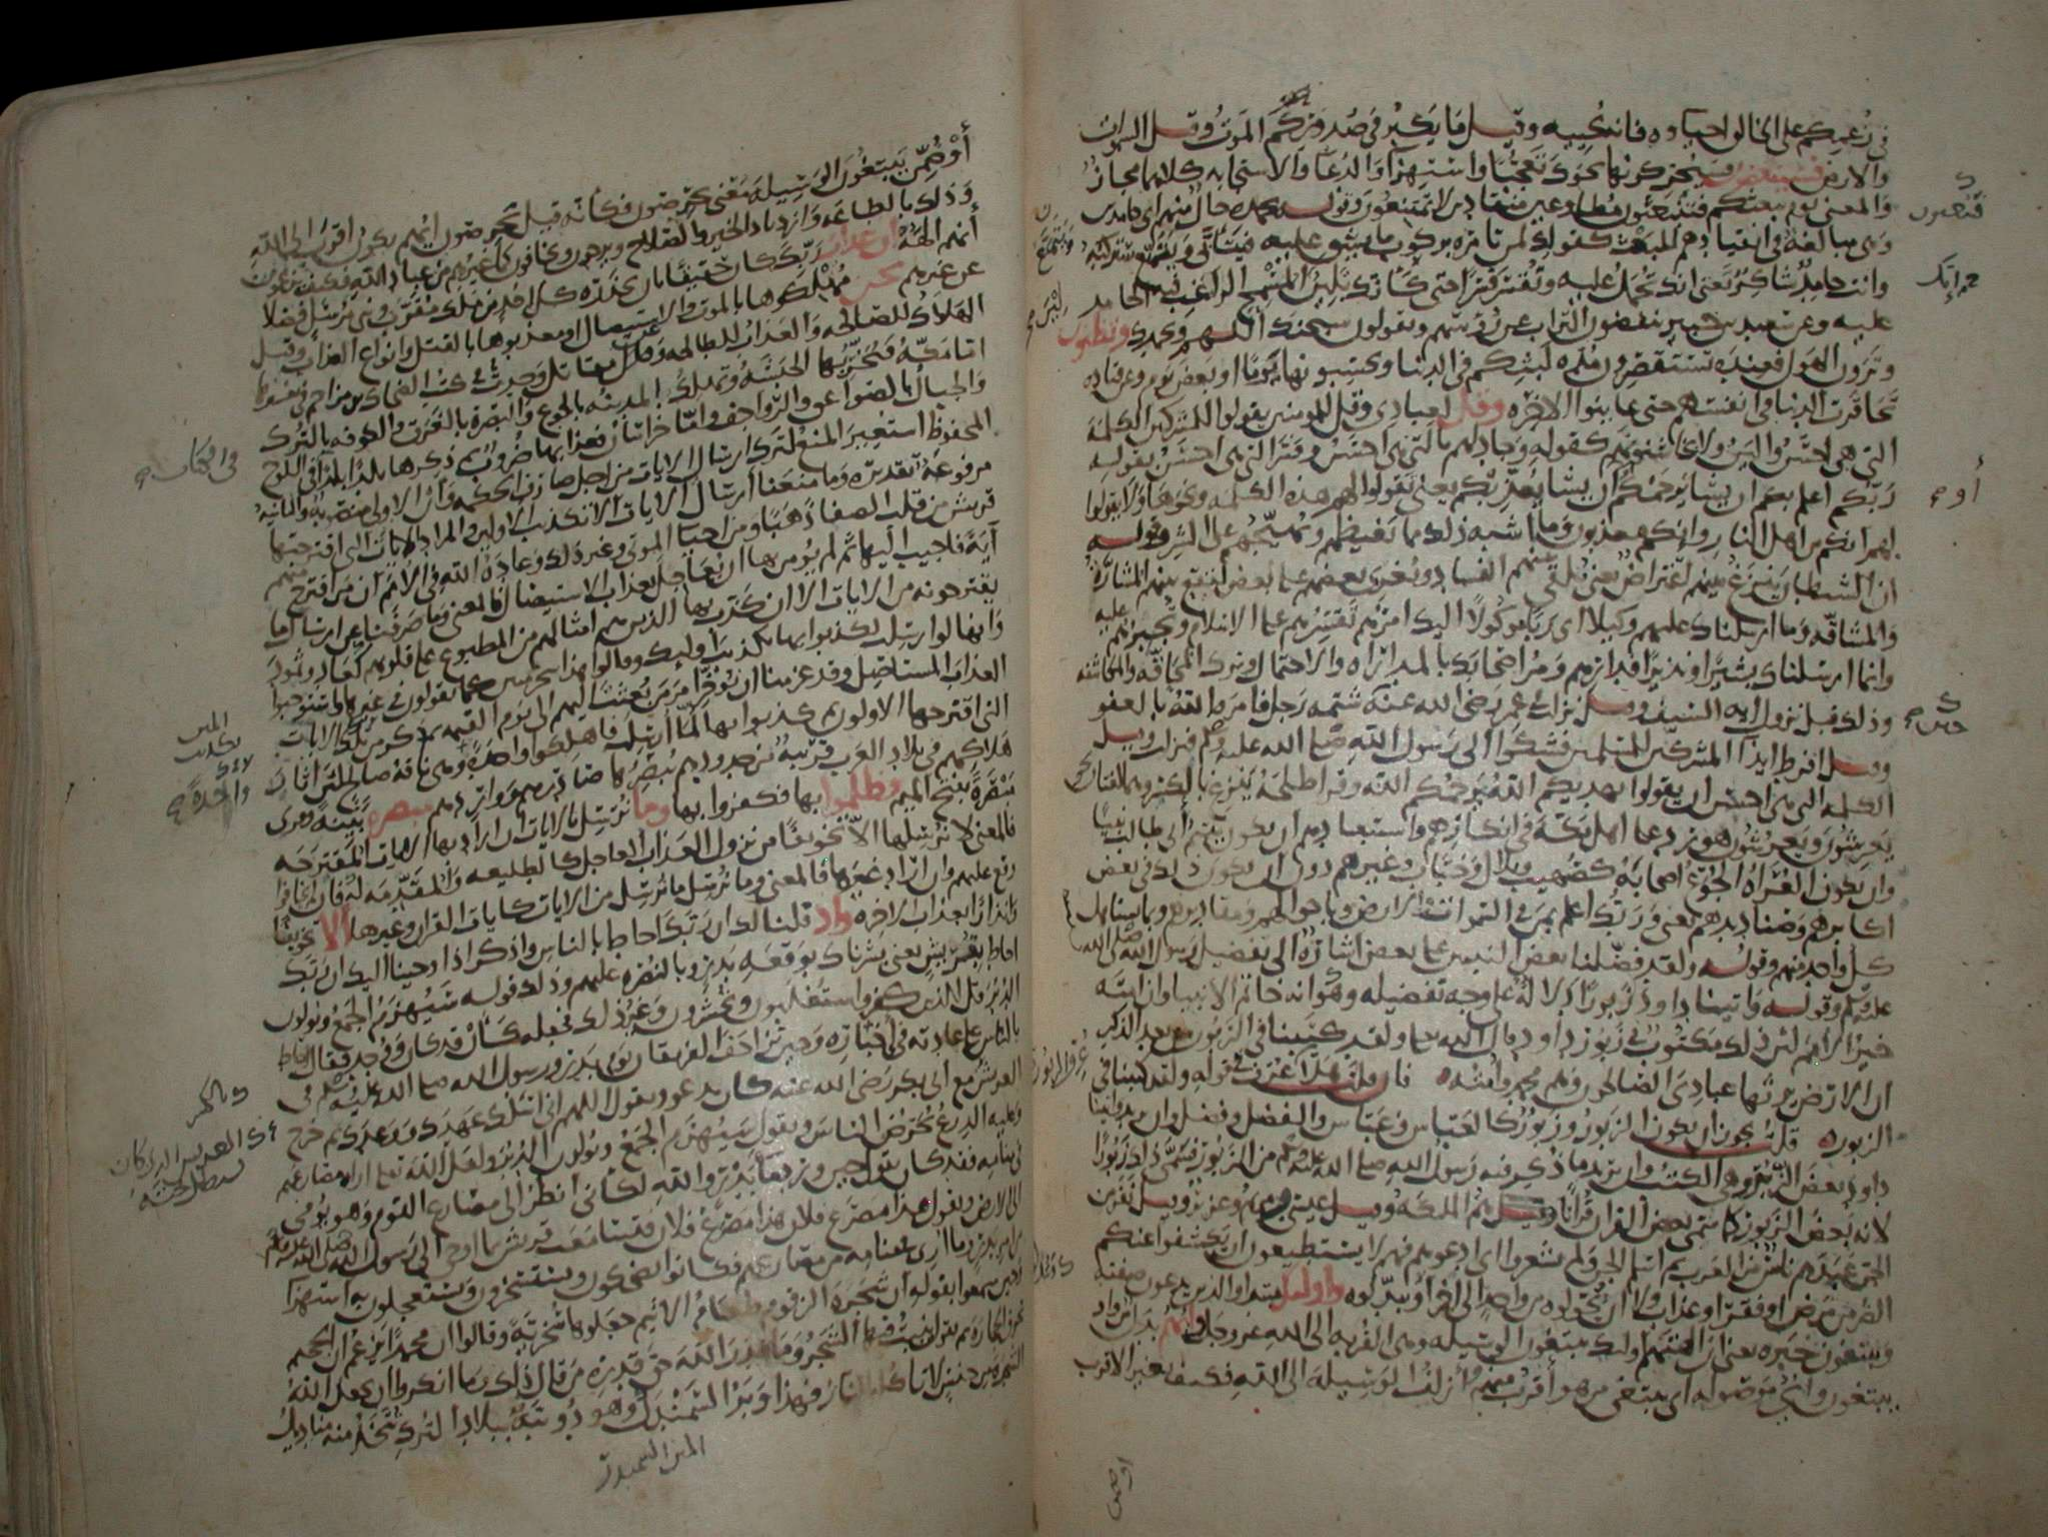 في زعمكم على الخالق احياوه فانه يحييه وقيل ما يكبر في صدوركم الموت وقيل السموات
والارض فسينغضون فسيحركونها نحوك تعجبا واستهزآ والدعا والاستجابه كلاهما مجاز
والمعنى يوم يبعثكم فتنبعثون مطاوعين منقادين لا تمتنعون وقوله بحمده حال منهم اى حامدين
وهى مبالغة فى انقيادهم للبعث كقولك لمن تامره بركوب ما يشق عليه فيتأبى ويتمنع ستركبه
وانت حامد شاكر يعنى انك تحمل عليه وتقسر قسرا حتى كانك تلين لين المسمح الراغب فيه الحامد
عليه وعن سعيد بن جبير ينفضون التراب عن رؤسهم ويقولون سبحنك اللهم وبحمدك وتظنون
وترون الهول فعنده تستقصرون مدة لبثكم فى الدنيا وتحسبونها يوما او بعض يوم وعن قتاده
تحاقرت الدنيا فى انفسهم حين عاينوا الاخره وقل لعبادي وقل للمومنين يقولوا للمشركين الكلمة
التى هى احسن والين ولا يخاشنوهم كقوله وجادلهم بالتى هى احسن وفسر التى هى احسن بقوله
ربكم اعلم بكم ان يشا يرحمكم او ان يشا يعذبكم يعنى يقولوا لهم هذه الكلمه ونحوها ولا يقولوا
لهم انكم من اهل النار وانكم معذبون وما اشبه ذلك مما يغيظهم ويهيجهم على الشر وقوله
ان الشيطان ينزغ بينهم اعتراض يعنى يلقى بينهم الفساد ويغرى بعضهم على بعض ليقع بينهم المشارة
والمشاقه وما ارسلناك عليهم وكيلا اى ربا موكولا اليك امرهم تقسرهم على الاسلام وتجبرهم عليه
وانما ارسلناك بشيرا ونذيرا فدارهم ومر اصحابك بالمداراه والاحتمال وترك المحاقه والمكاشفه
وذلك قبل نزول آيه السيف وقيل نزلت فى عمر رضى الله عنه شتمه رجل فامره الله بالعفو
وقيل افرط ايذآ المشركين للمسلمين فشكوا الى رسول الله صلى الله عليه وسلم فنزلت وقيل
الكلمه التى هى احسن ان يقولوا يهديكم الله يرحمكم الله وقرا طلحه ينزغ بالكسر وهما لغتان نحو
يعرشون ويعرشون هو رد على اهل مكة فى انكارهم واستبعادهم ان يكون يتيم ابى طالب نبيا
وان يكون العراة الجوع اصحابه كصهيب وبلال وخباب وغيرهم دون ان يكون ذلك فى بعض
اكابرهم وصناديدهم يعنى وربك اعلم بمن فى السموات والارض وباحوالهم ومقاديرهم وبما يستاهل
كل واحد منهم وقوله ولقد فضلنا بعض النبيين على بعض اشارة الى تفضيل رسول الله صلى الله
عليه وسلم وقوله واتينا داود زبورا دلالة على وجه تفضيله وهو انه خاتم الانبيا وان امته
خير الامم لان ذلك مكتوب فى زبور داود قال الله تعالى ولقد كتبنا فى الزبور من بعد الذكر
ان الارض يرثها عبادي الصالحون وهم محمد وامته فان قلت هلا عرف فى قوله ولقد كتبنا فى
الزبور قلت يجوز ان يكون الزبور وزبور كالعباس وعباس والفضل وفضل وان يريد واتينا
داود بعض الزبر وهى الكتب وان يريد ما ذكر فيه رسول الله صلى الله عليه وسلم من الزبور فسمى ذلك زبورا
لانه بعض الزبور كما سمى بعض القران قرانا وقيل هم الملئكه وقيل عيسى بن مريم وعزير وقيل نفر من
الجن عبدهم ناس من العرب ثم اسلم الجن ولم يشعروا اى ادعوهم فهم لا يستطيعون ان يكشفوا عنكم
الضر من مرض او فقر او عذاب ولا ان يحولوه من واحد الى اخر او يبدلوه واوليك مبتدا والذين يدعون صفته
ويبتغون خبره يعنى ان الهتهم اولئك يبتغون الوسيله وهى القربه الى الله عز وجل وايهم بدل من واو
يبتغون واي موصوله اى يبتغى من هو اقرب منهم وازلف الوسيلة الى الله فكيف بغير الاقرب
او ضمن يبتغون الوسيلة معنى يحرصون فكانه قيل يحرصون ايهم يكون اقرب الى الله
وذلك بالطاعه وازدياد الخير والصلاح ويرجون ويخافون كما غيرهم من عباد الله فكيف يزعمون
انهم الهة ان عذاب ربك كان حقيقا بان يحذره كل احد من ملك مقرب ونبى مرسل فضلا
عن غيرهم نحن مهلكوها بالموت والاستيصال او معذبوها بالقتل وانواع العذاب وقيل
الهلاك للصالحه والعذاب للطالحه وعن مقاتل وجدت فى كتب الضحاك بن مزاحم فى تفسيرها
اما مكة فتخربها الحبشة وتهلك المدينه بالجوع والبصرة بالغرق والكوفه بالترك
والجبال بالصواعق والرواجف واما خراسان فعذابها ضروب ثم ذكرها بلدا بلدا فى اللوح
المحفوظ استعير المنع لترك ارسال الايات من اجل صارف الحكمه وان الاولى منصوبه والثانيه
مرفوعة تقديره وما منعنا ارسال الايات الا تكذيب الاولين والمراد الايات التى اقترحتها
قريش من قلب الصفا ذهبا ومن احيا الموتى وغير ذلك وعادة الله فى الامم ان من اقترح منهم
آية فاجيب اليها ثم لم يؤمن بها ان يعاجل بعذاب الاستيصال فالمعنى وما صرفنا عن ارسال ما
يقترحونه من الايات الا ان كذب بها الذين هم امثالهم من المطبوع على قلوبهم كعاد وثمود
وانها لو ارسلت لكذبوا بها تكذيب اوليك وقالوا هذا سحر مبين كما يقولون فى غيرها واستوجبوا
العذاب المستاصل وقد عزمنا ان نؤخر امر من بعثت اليهم الى يوم القيمه ثم ذكر من تلك الايات
التى اقترحها الاولون ثم كذبوا بها لما ارسلت فاهلكوا واحدة وهى ناقة صالح لان اثار
هلاكهم فى بلاد العرب قريبة من حدودهم يبصرها صادرهم وواردهم مبصره بينة وقرى
مبصرة بفتح الميم فظلموا بها فكفروا بها وما نرسل بالايات ان اراد بها الايات المقترحه
فالمعنى لا نرسلها الا تخويفا من نزول العذاب العاجل كالطليعه والمقدمه له فان لم يخافوا
وقع عليهم وان اراد غيرها فالمعنى وما نرسل ما نرسل من الايات كايات القران وغيرها الا تخويفا
وانذارا بعذاب الاخره واذ قلنا لك ان ربك احاط بالناس واذكر اذ اوحينا اليك ان ربك
احاط بقريش يعنى بشرناك بوقعه بدر وبالنصره عليهم وذلك قوله سيهزم الجمع ويولون
الدبر قل للذين كفروا ستغلبون وتحشرون وغير ذلك فجعله كان قد كان ووجد فقال احاط
بالناس على عادته فى اخباره وحين تزاحف الفريقان يوم بدر ورسول الله صلى الله عليه وسلم فى
العريش مع ابى بكر رضى الله عنه كان يدعو ويقول اللهم انى اسئلك عهدك ووعدك ثم خرج
وعليه الدرع يحرض الناس ويقول سيهزم الجمع ويولون الدبر ولعل الله تعالى اراه مصارعهم
فى منامه فقد كان يقول حين ورد ماء بدر والله لكانى انظر الى مصارع القوم وهو يومى
الى الارض ويقول هذا مصرع فلان هذا مصرع فلان فتسامعت قريش بما اوحى الى رسول الله صلى الله عليه وسلم
من امر بدر وما ارى فى منامه من مصارعهم فكانوا يضحكون ويستسخرون ويستعجلون به استهزآ
وحين سمعوا بقوله ان شجرة الزقوم طعام الاثيم جعلوها سخرية وقالوا ان محمدا يزعم ان الجحيم
تحرق الحجارة ثم يقول ينبت فيها الشجر وما قدر الله حق قدره من قال ذلك وما انكروا ان يجعل الله
الشجرة من جنس لا تاكله النار فهذا وبر السمندل وهو دويبة ببلاد الترك تتخذ منه مناديل